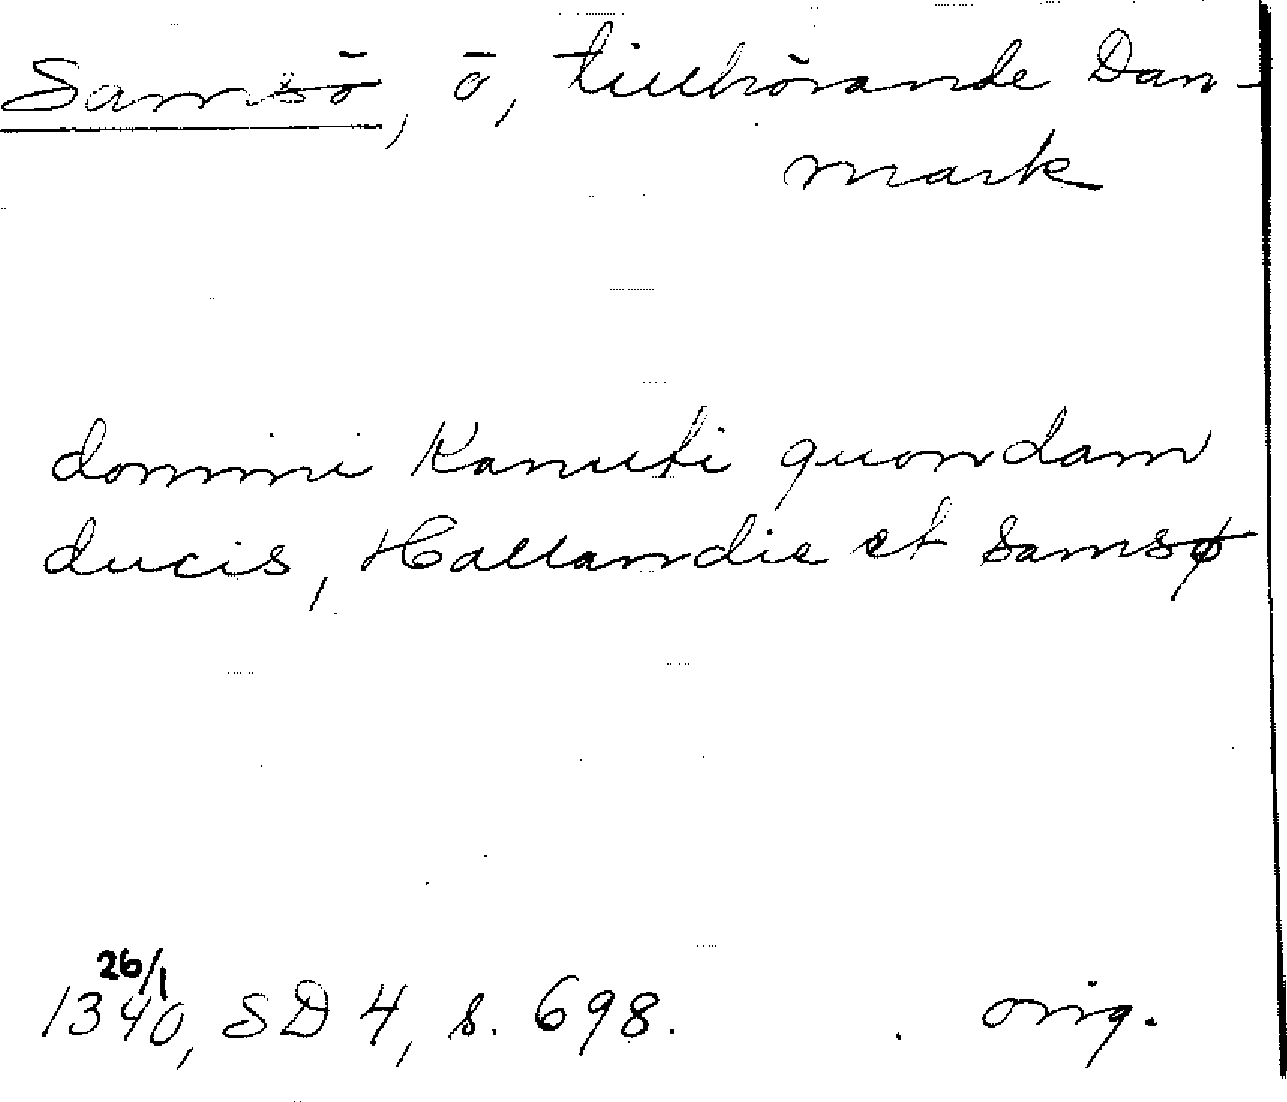 Samsö, ö, tillhörande Dan-
mark
domini Kanuti quondam
ducis, Hallandie et Samsø
26/1
1340, SD 4, s. 698. orig.